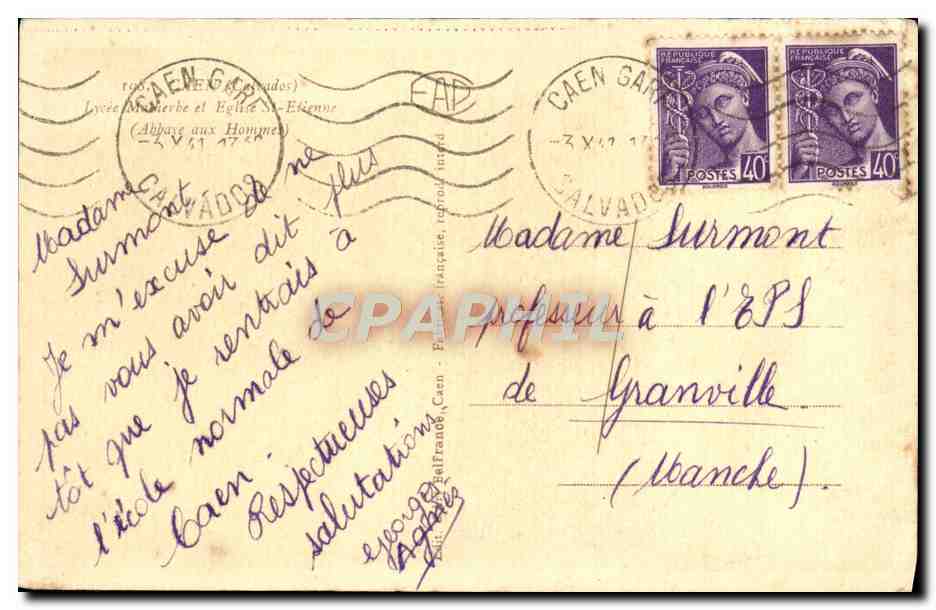 CAEN (Calvados)
Lycée Malherbe et Eglise St-Etienne
(Abbaye aux Hommes)
CAEN GARE
-3 X 41
CALVADOS
CAEN GARE
-3 X 41
CALVADOS
REPUBLIQUE FRANÇAISE
40c
POSTES
REPUBLIQUE FRANÇAISE
40c
POSTES
Madame
Surmont
Je m'excuse de ne
pas vous avoir dit plus
tôt que je rentrais à
l'école normale de
Caen.
Respectueuses
salutations
Georges
Agnès
BelFrance, Caen - française, reprod. interd
Madame Surmont
professeur à l'EPS
de Granville
(Manche).
CPAPHIL